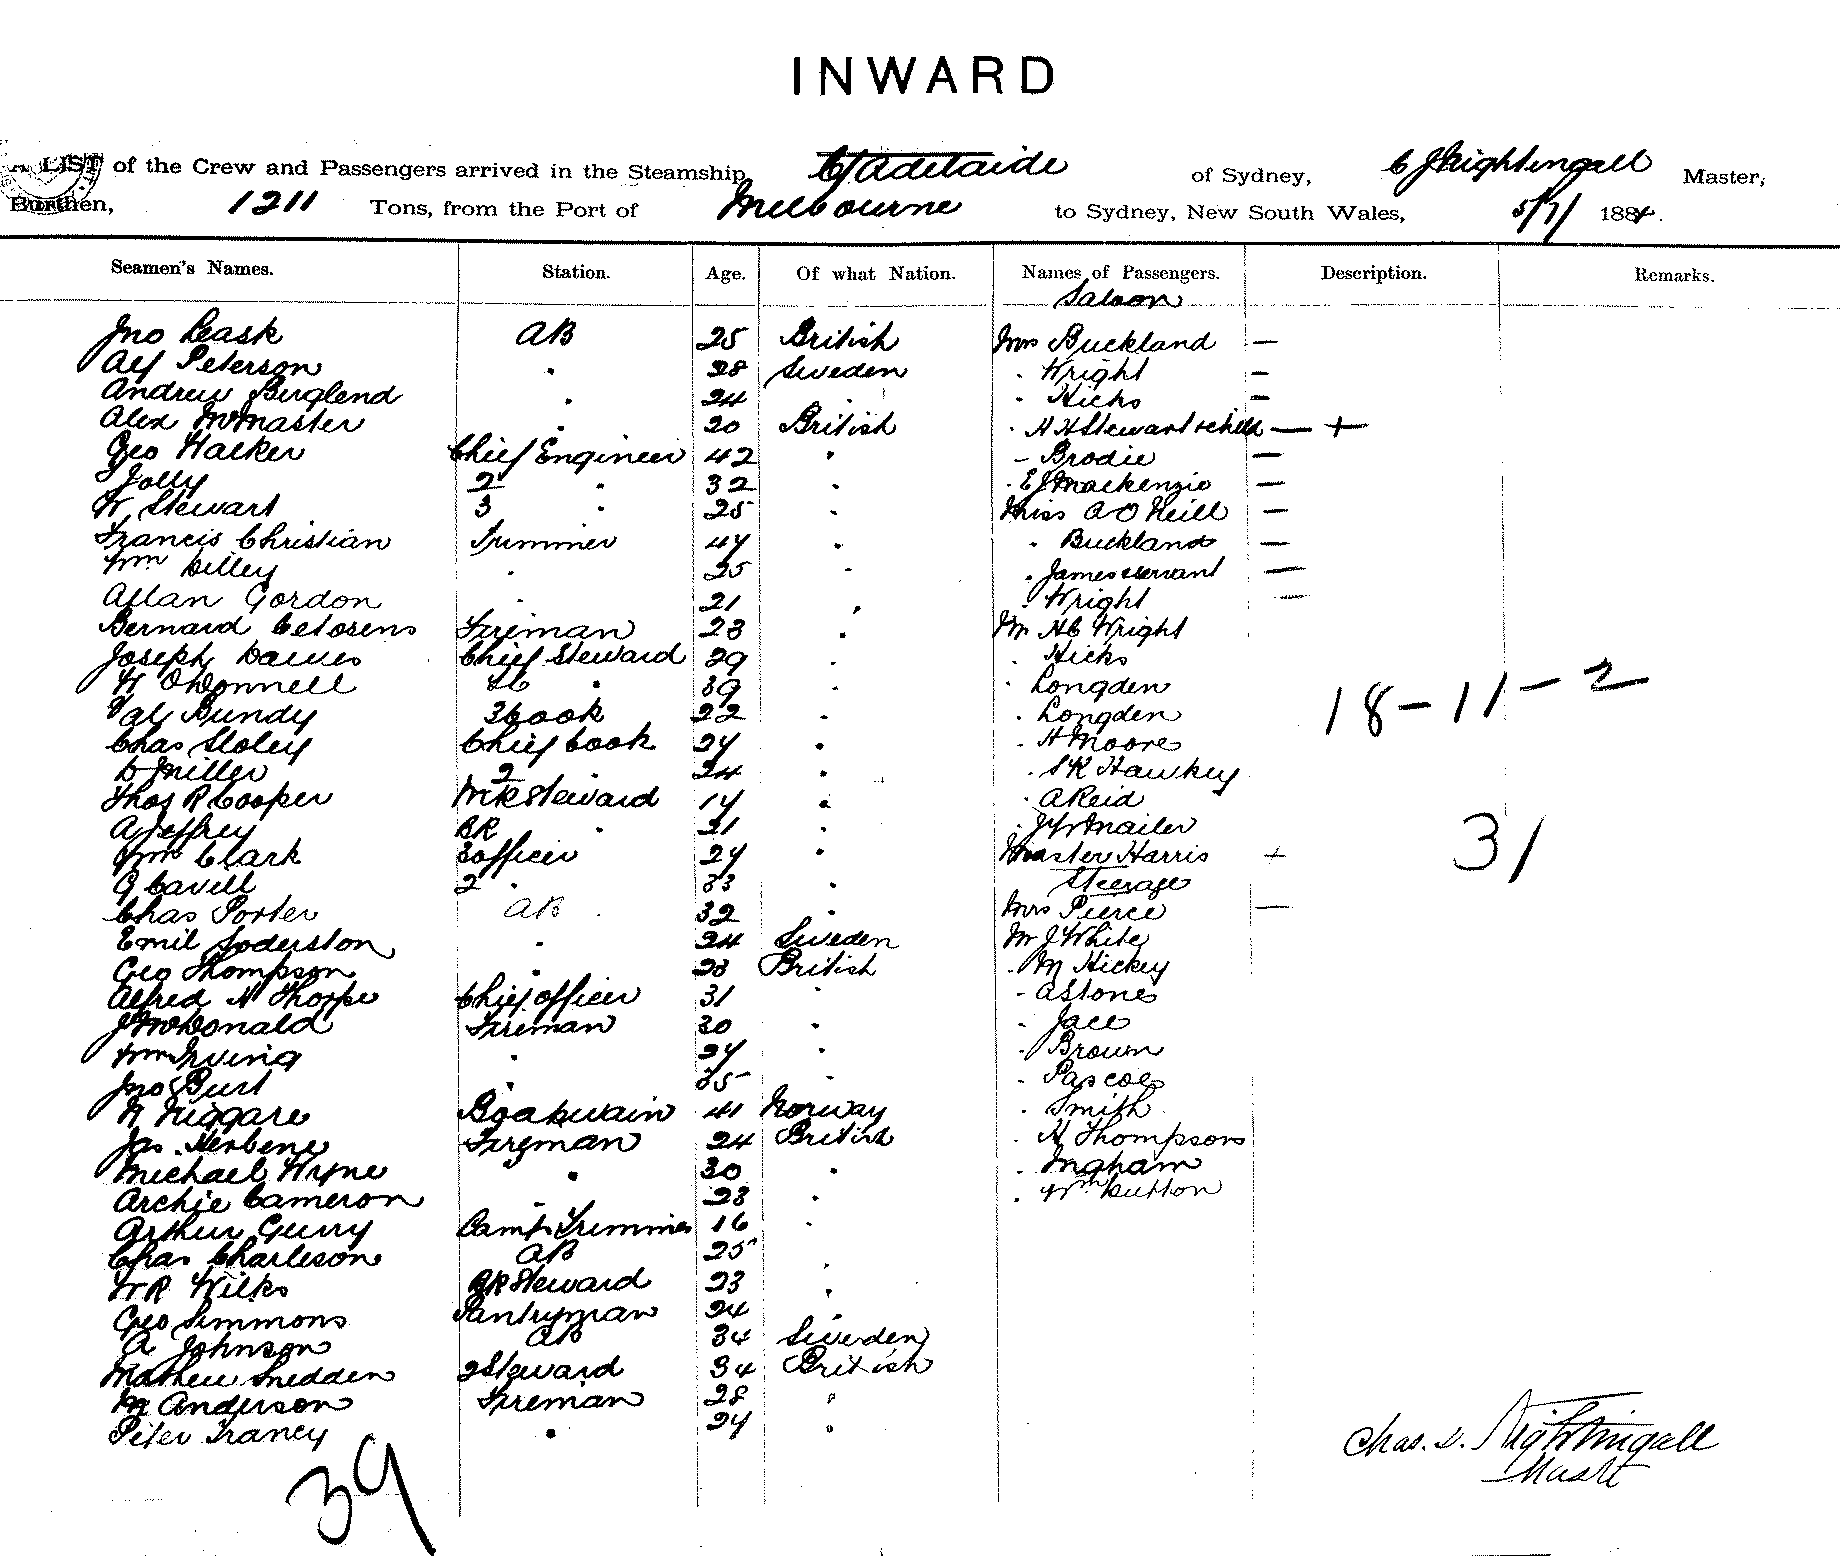 INWARD
A LIST of the Crew and Passengers arrived in the Steamship Cy Adelaide of Sydney, C J Nightingall Master,
Burthen, 1211 Tons, from the Port of Melbourne to Sydney, New South Wales, 5/7/ 1884.
Seamen's Names. Station. Age. Of what Nation. Names of Passengers. Description. Remarks.
Saloon
Jno Leask AB 25 British Mrs Buckland —
Alf Peterson " 28 Sweden " Wright —
Andrew Berglend " 24 " Hicks —
Alex McMaster 20 British " H H Stewart & child — +
Geo Walker Chief Engineer 42 " " Brodie —
Jolly 2 " 32 " " E J Mackenzie —
W Stewart 3 " 25 " Miss A O Neill —
Francis Christian Trimmer 44 " " Buckland —
Wm Dilley " 25 " " James & servant —
Allan Gordon " 21 " " Wright —
Bernard Fireman 23 " Mr H C Wright
Joseph Dawes Chief Steward 29 " " Hicks
W O'Donnell 2C " 39 " " Longden 18 - 11 - 2
Bundy 3 Cook 22 " " Longden
Chas Sloley Chief Cook 24 " " H Moore
D Miller 2 " 24 " " S K Hawkey
Thos R Cooper Mk Steward 14 " " A Reid
A Jeffrey BR " 21 " " J W Mailer 31
Wm Clark 3 officer 24 " Master Harris +
G Cavell 2 " 33 " Steerage
Chas Porter AB 32 " Mrs Pierce —
Emil Soderston " 24 Sweden Mr J White
Geo Thompson " 23 British " M Hickey
Alfred H Thorpe Chief officer 31 " " A Stones
J McDonald Fireman 30 " " Jace
Wm Irving " 24 " " Brown
Jno Burt " 35 " " Pascoe
N Niggare Boatswain 41 Norway " Smith
Jas Herbene Fireman 24 British " H Thompson
Michael Wryne " 30 " " Ingham
Archie Cameron " 23 " " Wm Dutton
Arthur Gurry Lamp Trimmer 16 "
Chas Charleson AB 25
W R Wilks BR Steward 23 "
Geo Simmons Pantryman 24 "
A Johnson AB 34 Sweden
Mathew Snedden 2 Steward 34 British
M Anderson Fireman 28 "
Peter Traney " 24 "
39
Chas. D. Nightingall
Master